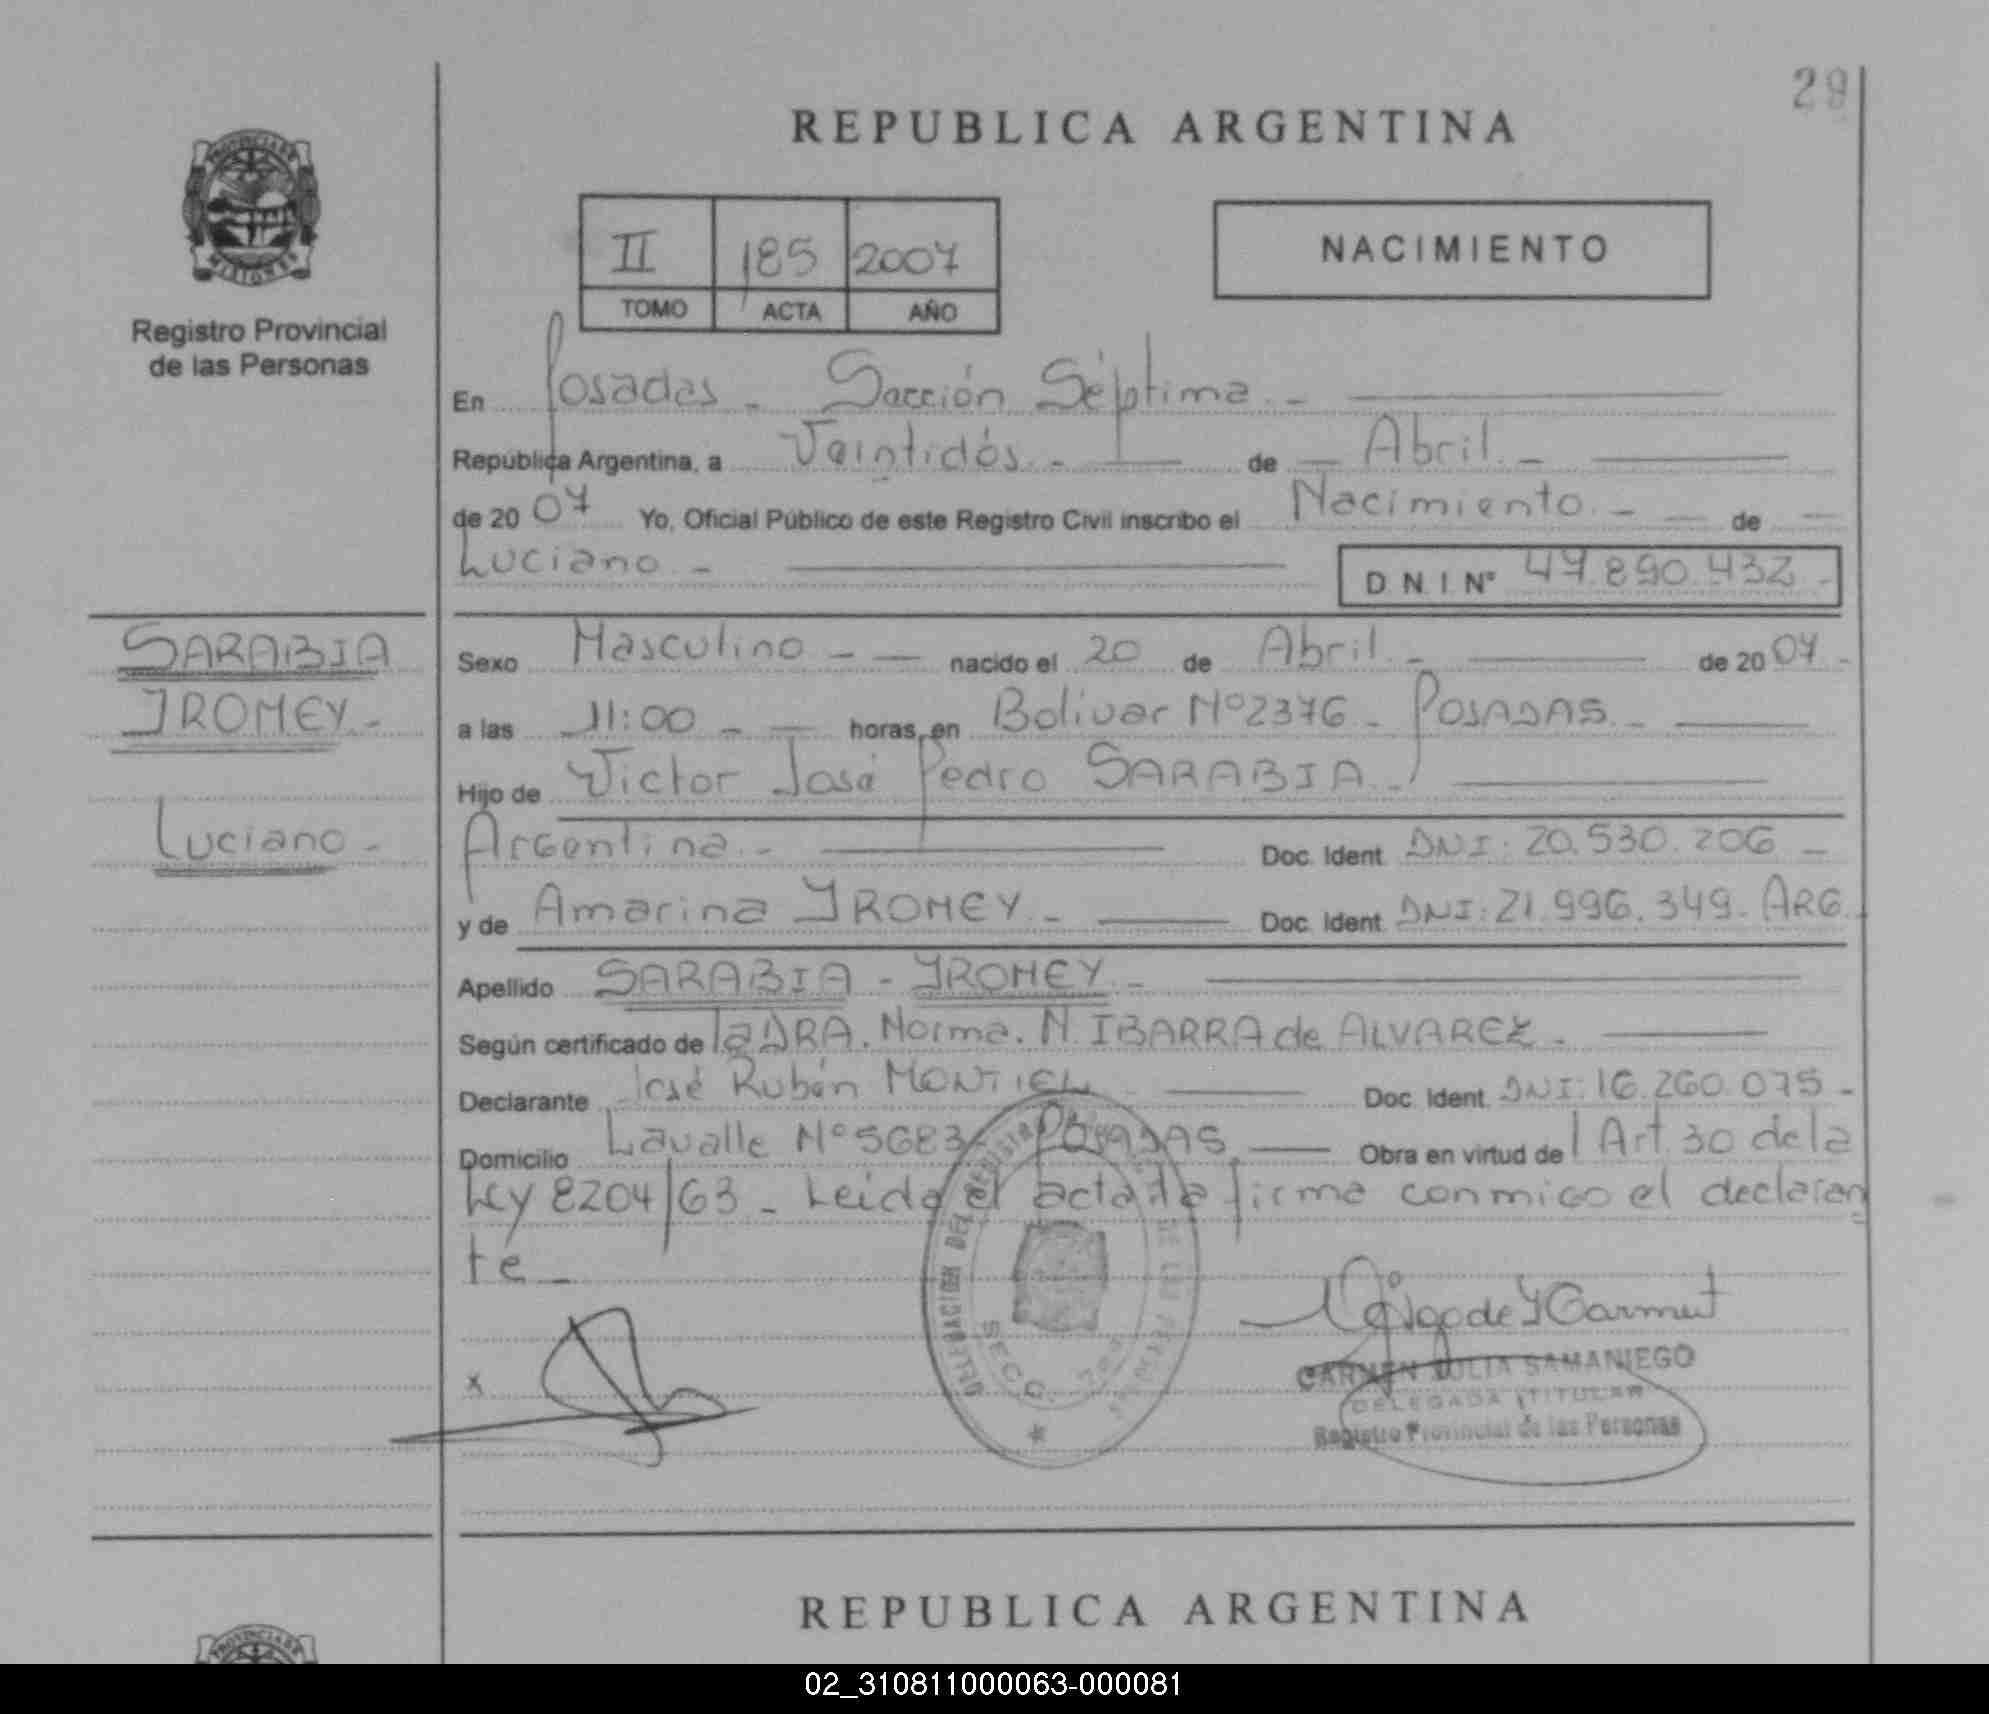 29
REPUBLICA ARGENTINA
PROVINCIA DE
MISIONES
Registro Provincial
de las Personas
II 185 2007
TOMO ACTA AÑO
NACIMIENTO
En Posadas - Sección Séptima. -
República Argentina, a Veintidós. - de Abril. -
de 20 07 Yo, Oficial Público de este Registro Civil inscribo el Nacimiento. - de
Luciano. -
D. N. I. N° 47.890.432 -
SARABIA
YROMEY. -
Luciano -
Sexo Masculino - nacido el 20 de Abril. - de 20 07 -
a las 11:00 - horas, en Bolivar Nº2376 - POSADAS. -
Hijo de Victor José Pedro SARABIA. -
Argentina. - Doc. Ident. DNI: 20.530.206 -
y de Amarina YROMEY. - Doc. Ident. DNI: 21.996.349. ARG.
Apellido SARABIA - YROMEY. -
Según certificado de la DRA. Norma. N. IBARRA de ALVAREZ. -
Declarante José Rubén MONTIEL Doc. Ident. DNI: 16.260.075 -
Domicilio Lavalle Nº 5683 - POSADAS. Obra en virtud de l Art. 30 de la
Ley 8204/63 - Leida el acta la firma conmigo el declaran
te -
x
DELEGACION DEL REGISTRO DE LAS PERSONAS
SECC. 7ma
CARMEN JULIA SAMANIEGO
DELEGADA TITULAR
Registro Provincial de las Personas
REPUBLICA ARGENTINA
PROVINCIA DE
02_310811000063-000081